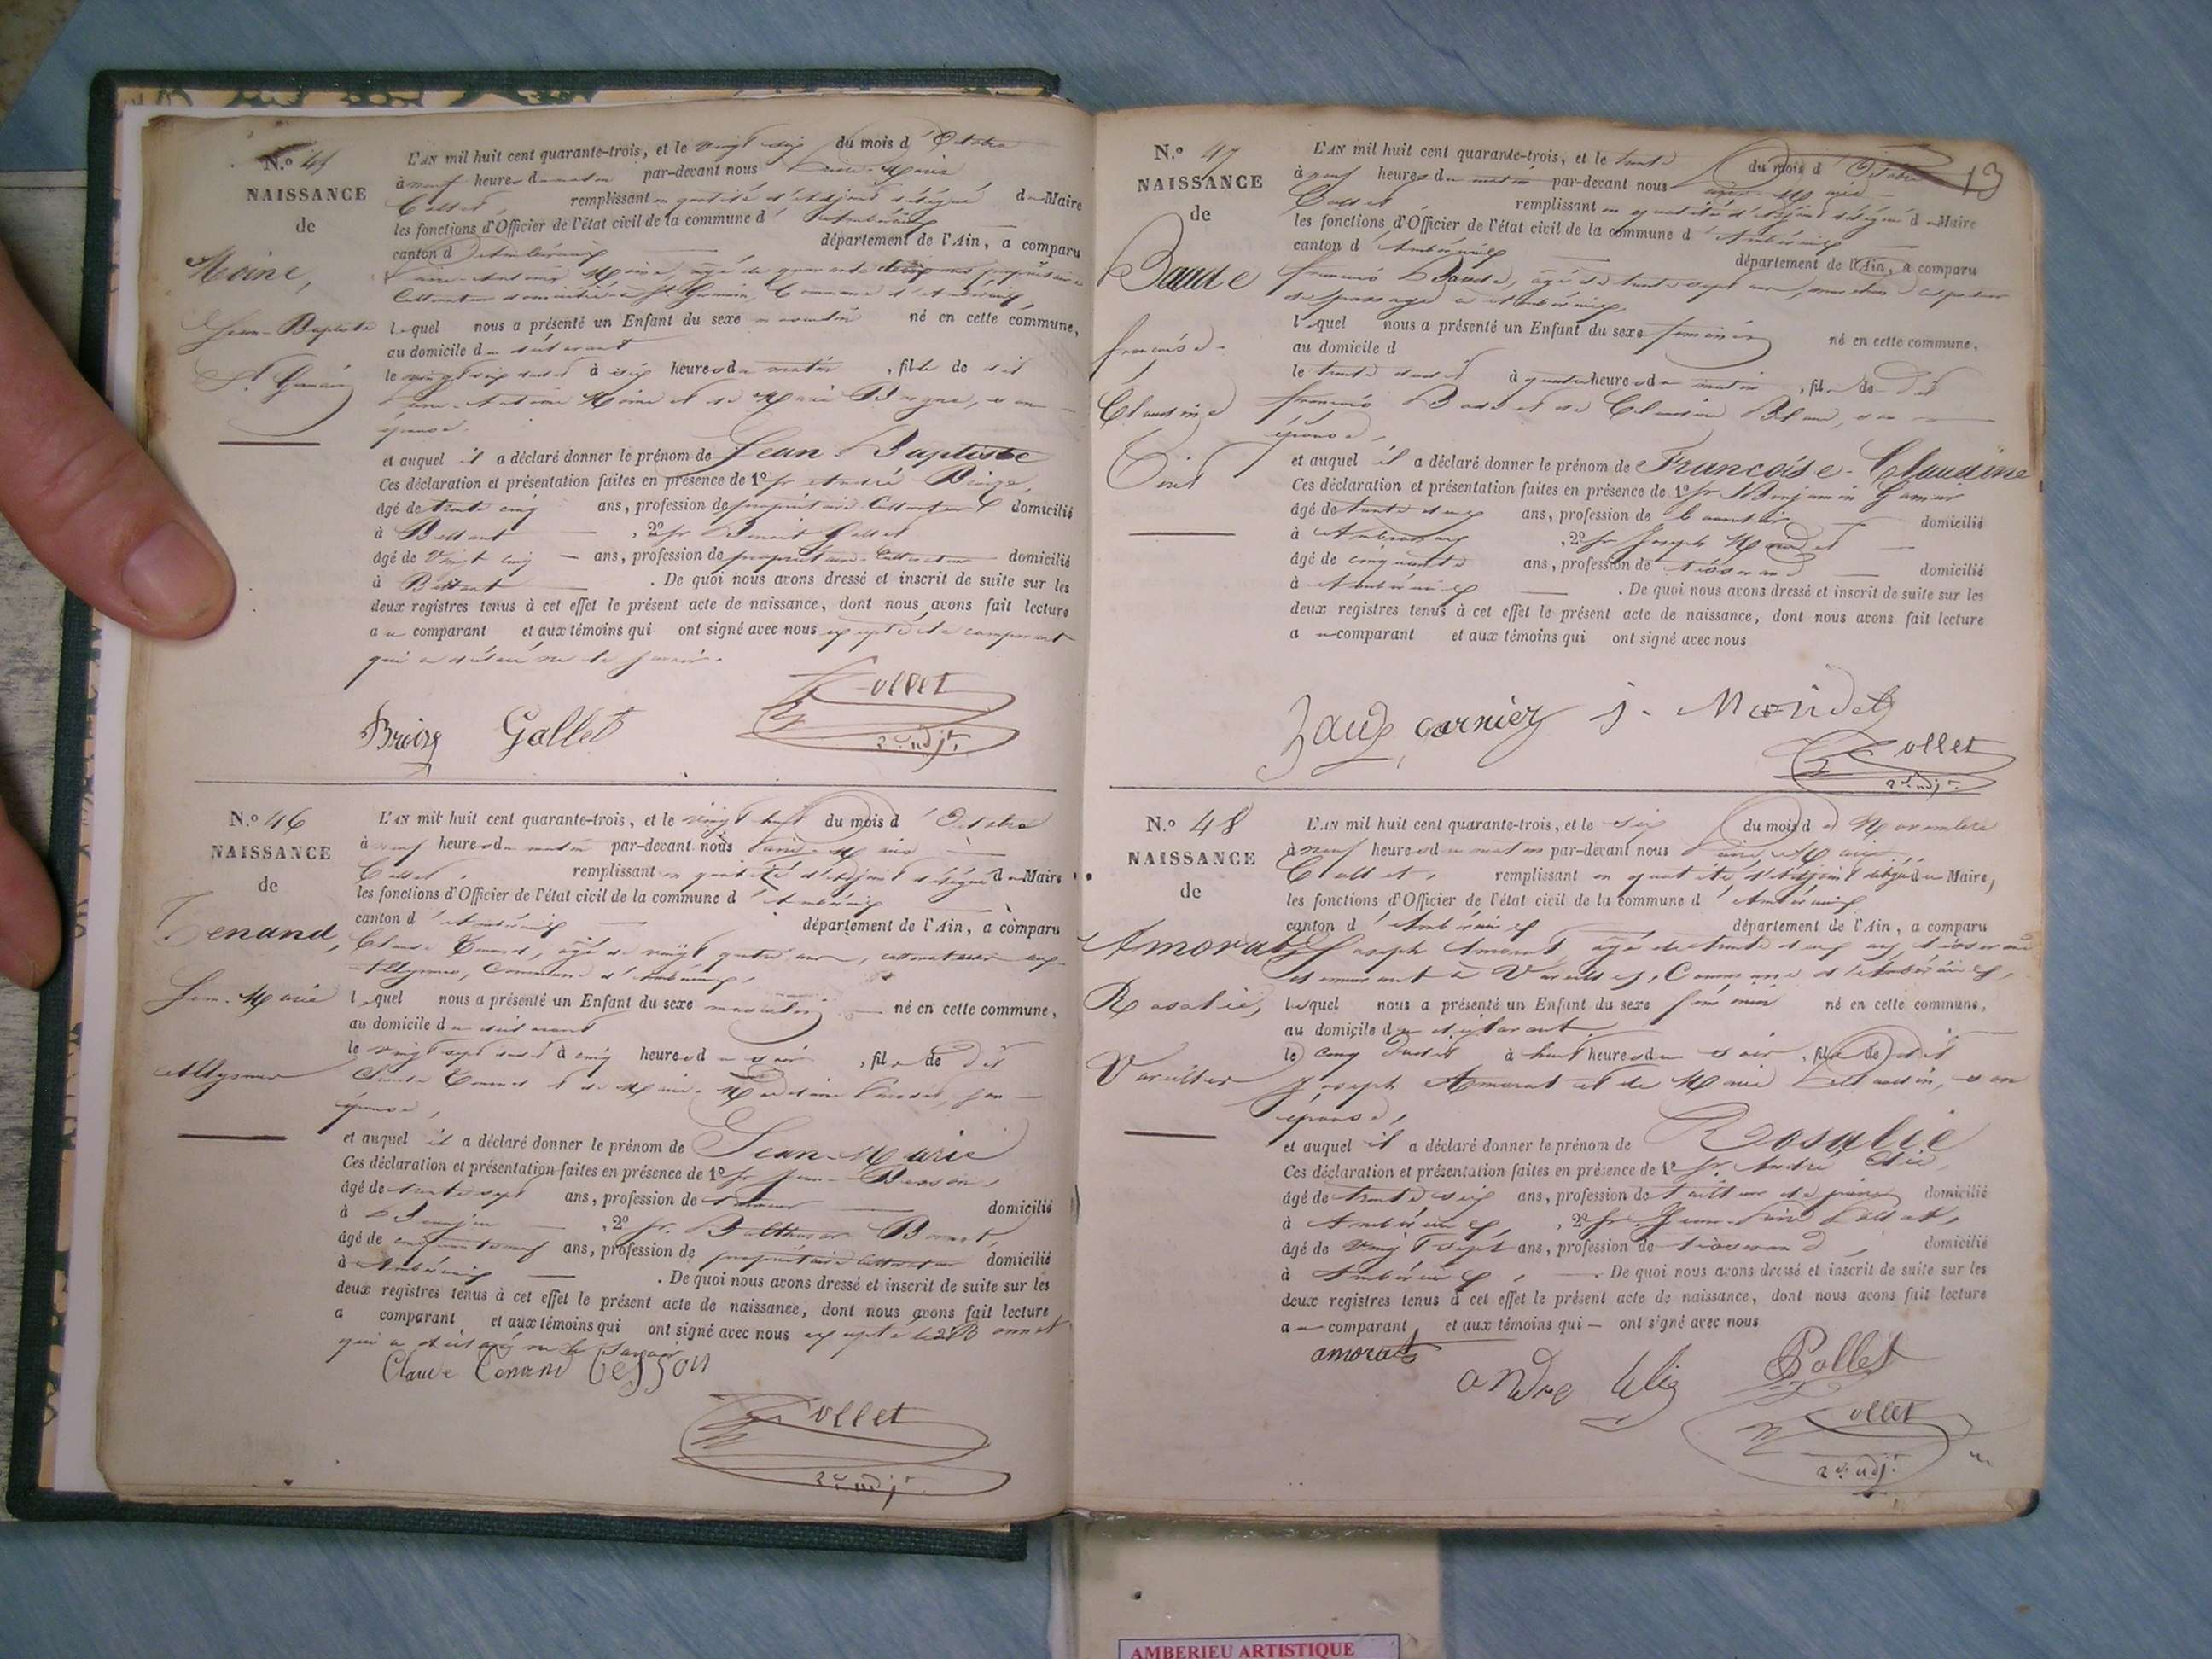 N.º 45
NAISSANCE
de
Moine,
Jean-Baptiste
St Germain
L'AN mil huit cent quarante-trois, et le vingt six du mois d'Octobre
à neuf heures du matin par-devant nous Pierre-Marie
Collet, remplissant en qualité d'Adjoint délégué du Maire
les fonctions d'Officier de l'état civil de la commune d'Ambérieux
canton d'Ambérieux département de l'Ain, a comparu
Moine, âgé de quarante ans, propriétaire
Cultivateur domicilié à St Germain, Commune d'Ambérieux,
lequel nous a présenté un Enfant du sexe masculin né en cette commune,
au domicile du déclarant
le vingt six dudit à six heures du matin, fils de dit
Moine et de Marie son
épouse.
et auquel il a déclaré donner le prénom de Jean-Baptiste
Ces déclaration et présentation faites en présence de 1º Sr André
âgé de trente cinq ans, profession de propriétaire Cultivateur domicilié
à Bettant, 2º Sr Benoit Gallet
âgé de vingt cinq ans, profession de propriétaire Cultivateur domicilié
à Bettant. De quoi nous avons dressé et inscrit de suite sur les
deux registres tenus à cet effet le présent acte de naissance, dont nous avons fait lecture
au comparant et aux témoins qui ont signé avec nous excepté le comparant
qui a déclaré ne le savoir.
Gallet
Collet
2e adjt
N.º 46
NAISSANCE
de
Tenand,
Jean-Marie
Allymes
L'AN mil huit cent quarante-trois, et le vingt huit du mois d'Octobre
à neuf heures du matin par-devant nous Pierre-Marie
Collet, remplissant en qualité d'Adjoint délégué du Maire
les fonctions d'Officier de l'état civil de la commune d'Ambérieux
canton d'Ambérieux département de l'Ain, a comparu
Claude Tenand, âgé de vingt quatre ans, cultivateur aux
Allymes, Commune d'Ambérieux,
lequel nous a présenté un Enfant du sexe masculin né en cette commune,
au domicile du déclarant
le vingt sept dudit à cinq heures du soir, fils de dit
Claude Tenand et de Marie son
épouse,
et auquel il a déclaré donner le prénom de Jean-Marie
Ces déclaration et présentation faites en présence de 1º Sr Jean Besson,
âgé de trente sept ans, profession de domicilié
à, 2º Sr. Balthazar Bonnet,
âgé de cinquante neuf ans, profession de propriétaire cultivateur domicilié
à Ambérieux. De quoi nous avons dressé et inscrit de suite sur les
deux registres tenus à cet effet le présent acte de naissance, dont nous avons fait lecture
a comparant et aux témoins qui ont signé avec nous excepté le Sr Bonnet
qui a déclaré ne le savoir
Claude Tenand Besson
Collet
2e adjt
13
N.º 47
NAISSANCE
de
Baude
françoise-
Claudine
L'AN mil huit cent quarante-trois, et le trente du mois d'Octobre
à neuf heures du matin par-devant nous Pierre-Marie
Collet remplissant en qualité d'Adjoint délégué du Maire
les fonctions d'Officier de l'état civil de la commune d'Ambérieux
canton d'Ambérieux département de l'Ain, a comparu
françois Baude, âgé de trente sept ans, marchand colporteur
de passage à Ambérieux,
lequel nous a présenté un Enfant du sexe féminin né en cette commune,
au domicile d
le trente dudit à quatre heures du matin, fille de dit
françois Baude et de Claudine Blanc, son
épouse,
et auquel il a déclaré donner le prénom de Françoise-Claudine
Ces déclaration et présentation faites en présence de 1º Sr Benjamin
âgé de trente deux ans, profession de domicilié
à, 2º Sr Joseph
âgé de cinquante ans, profession de tisserand domicilié
à Ambérieux. De quoi nous avons dressé et inscrit de suite sur les
deux registres tenus à cet effet le présent acte de naissance, dont nous avons fait lecture
au comparant et aux témoins qui ont signé avec nous
J.
Collet
2e adjt
N.º 48
NAISSANCE
de
Amorat
Rosalie,
Vareilles
L'AN mil huit cent quarante-trois, et le six du mois de Novembre
à neuf heures du matin par-devant nous Pierre-Marie
Collet, remplissant en qualité d'Adjoint délégué du Maire,
les fonctions d'Officier de l'état civil de la commune d'Ambérieux
canton d'Ambérieux département de l'Ain, a comparu
Joseph Amorat âgé de trente deux ans, tisserand
demeurant à Vareilles, Commune d'Ambérieux,
lequel nous a présenté un Enfant du sexe féminin né en cette commune,
au domicile du déclarant
le cinq dudit à huit heures du soir, fille de dit
Joseph Amorat et de Marie son
épouse,
et auquel il a déclaré donner le prénom de Rosalie
Ces déclaration et présentation faites en présence de 1º Sr. André
âgé de trente six ans, profession de tailleur de pierres domicilié
à Ambérieux, 2º Sr. Jean
âgé de vingt sept ans, profession de tisserand, domicilié
à Ambérieux. De quoi nous avons dressé et inscrit de suite sur les
deux registres tenus à cet effet le présent acte de naissance, dont nous avons fait lecture
au comparant et aux témoins qui ont signé avec nous
amorat
andre
Collet
2e adjt.
AMBERIEU ARTISTIQUE